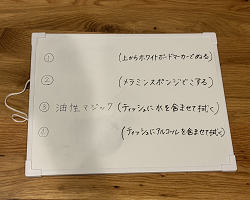 ① (上からホワイトボードマーカーでぬる)
② (メラミンスポンジでこする)
③ 油性マジック (ティッシュに水を含ませて拭く)
④ (ティッシュにアルコールを含ませて拭く)